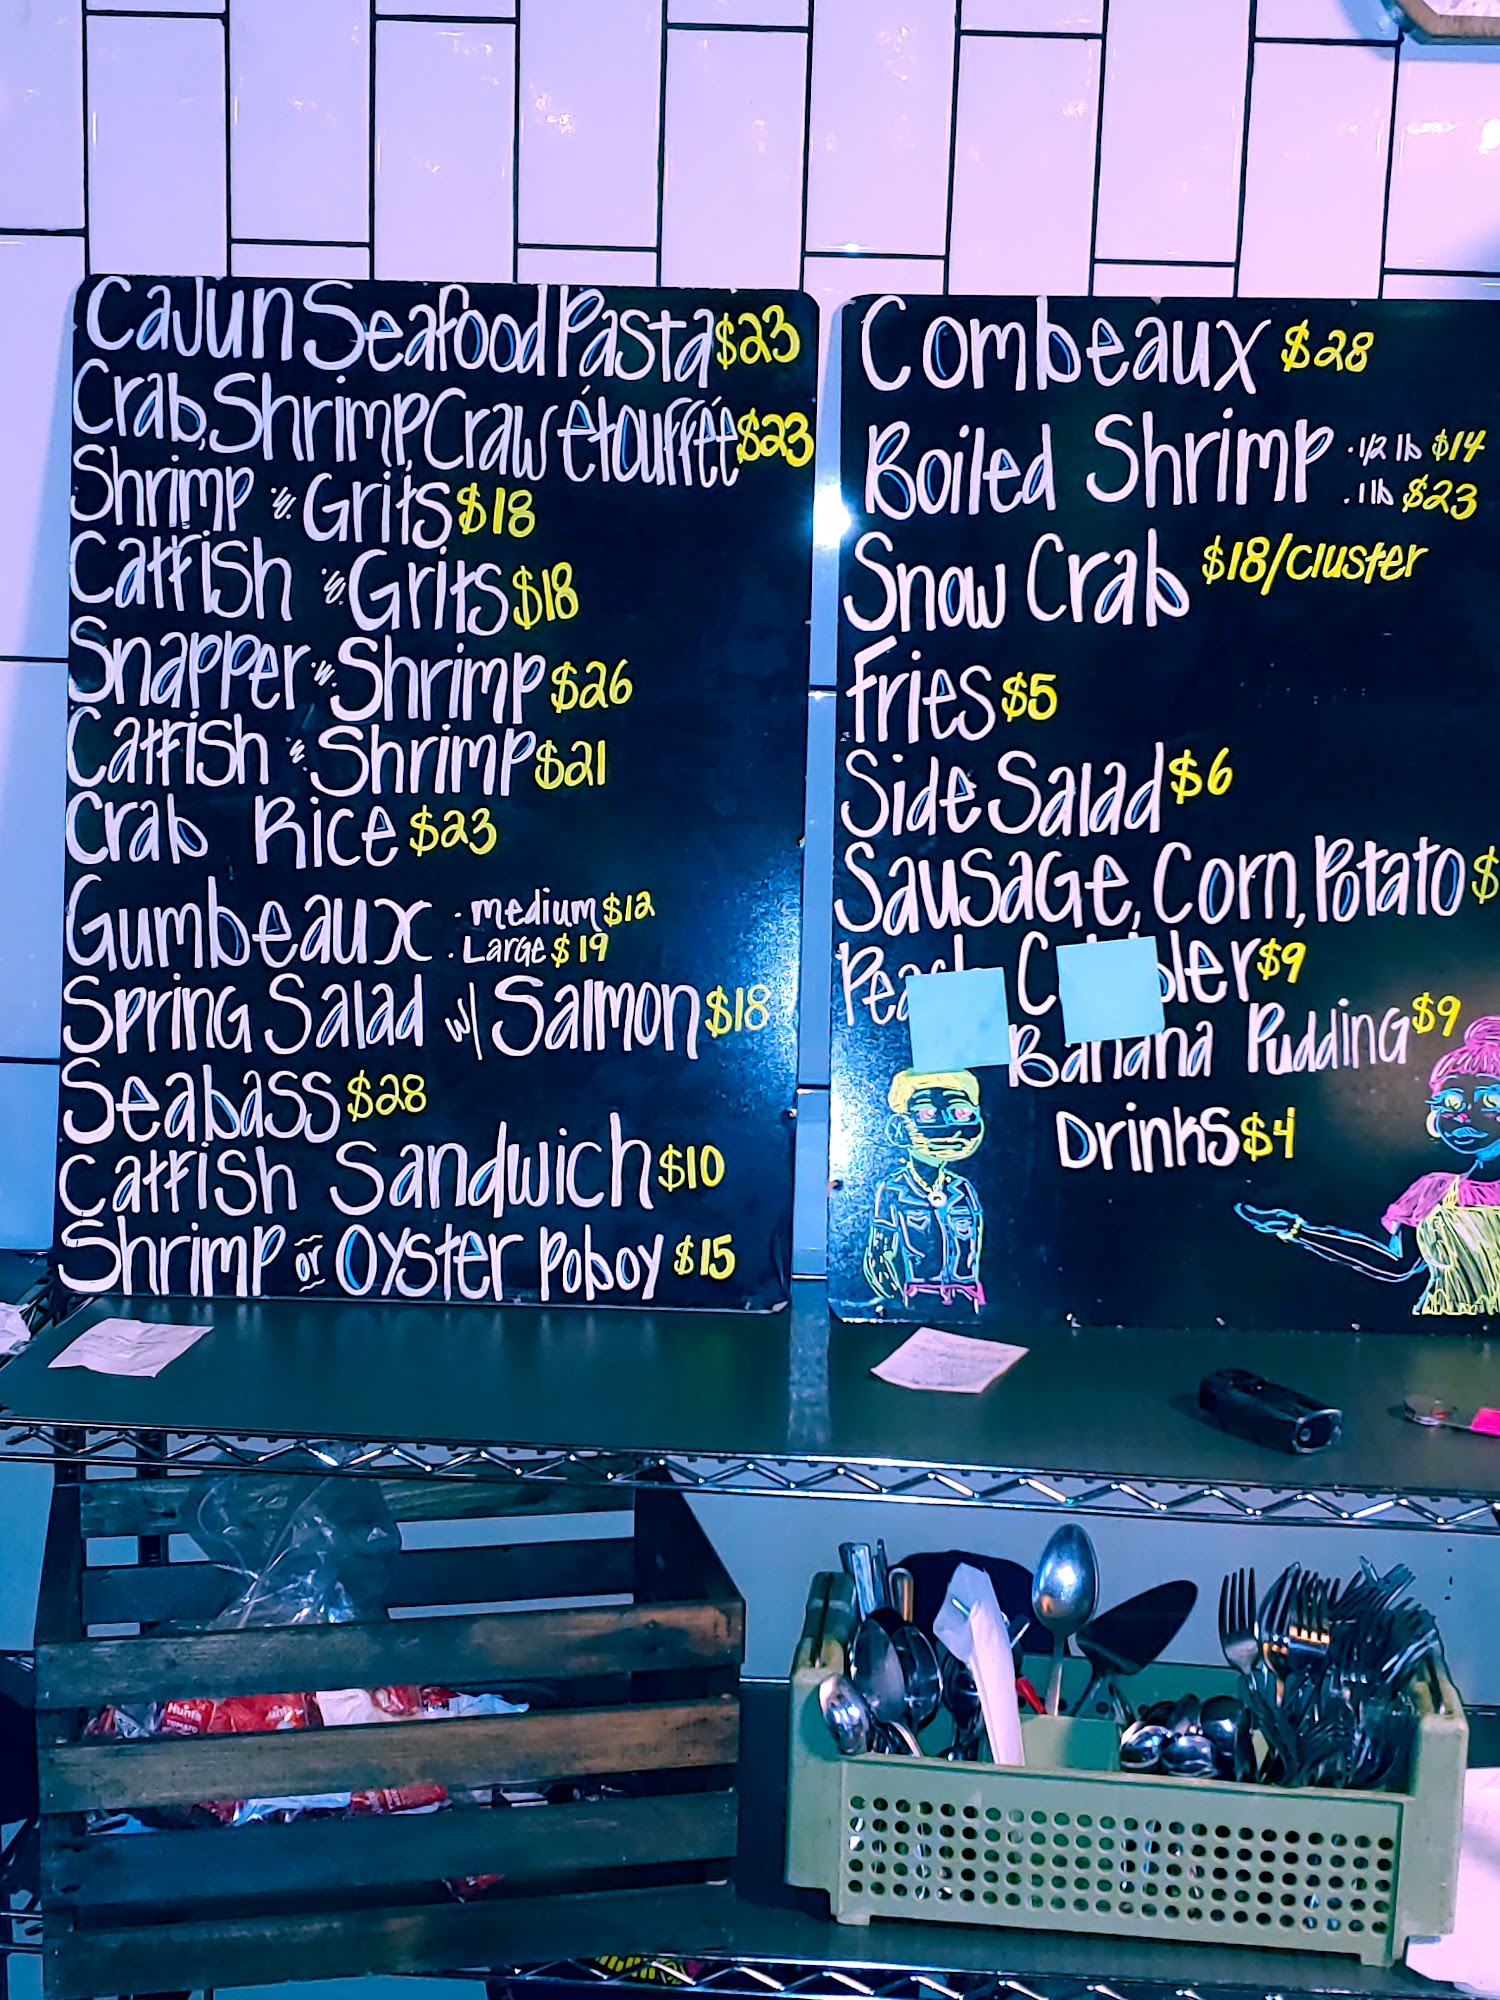 Cajun Seafood Pasta $23
Crab, Shrimp, Craw étouffée $23
Shrimp & Grits $18
Catfish & Grits $18
Snapper & Shrimp $26
Catfish & Shrimp $21
Crab Rice $23
Gumbeaux · medium $12
· Large $19
Spring Salad w/ Salmon $18
Seabass $28
Catfish Sandwich $10
Shrimp or Oyster Poboy $15
Combeaux $28
Boiled Shrimp · 1/2 lb $14
· 1 lb $23
Snow Crab $18/cluster
Fries $5
Side Salad $6
Sausage, Corn, Potato $
$9
Banana Pudding $9
Drinks $4
Hunt's
TOMATO